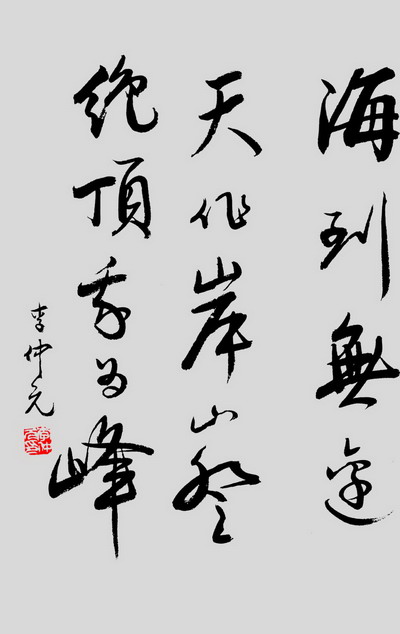 海到無邊
天作岸山登
絶頂我为峰
李仲元